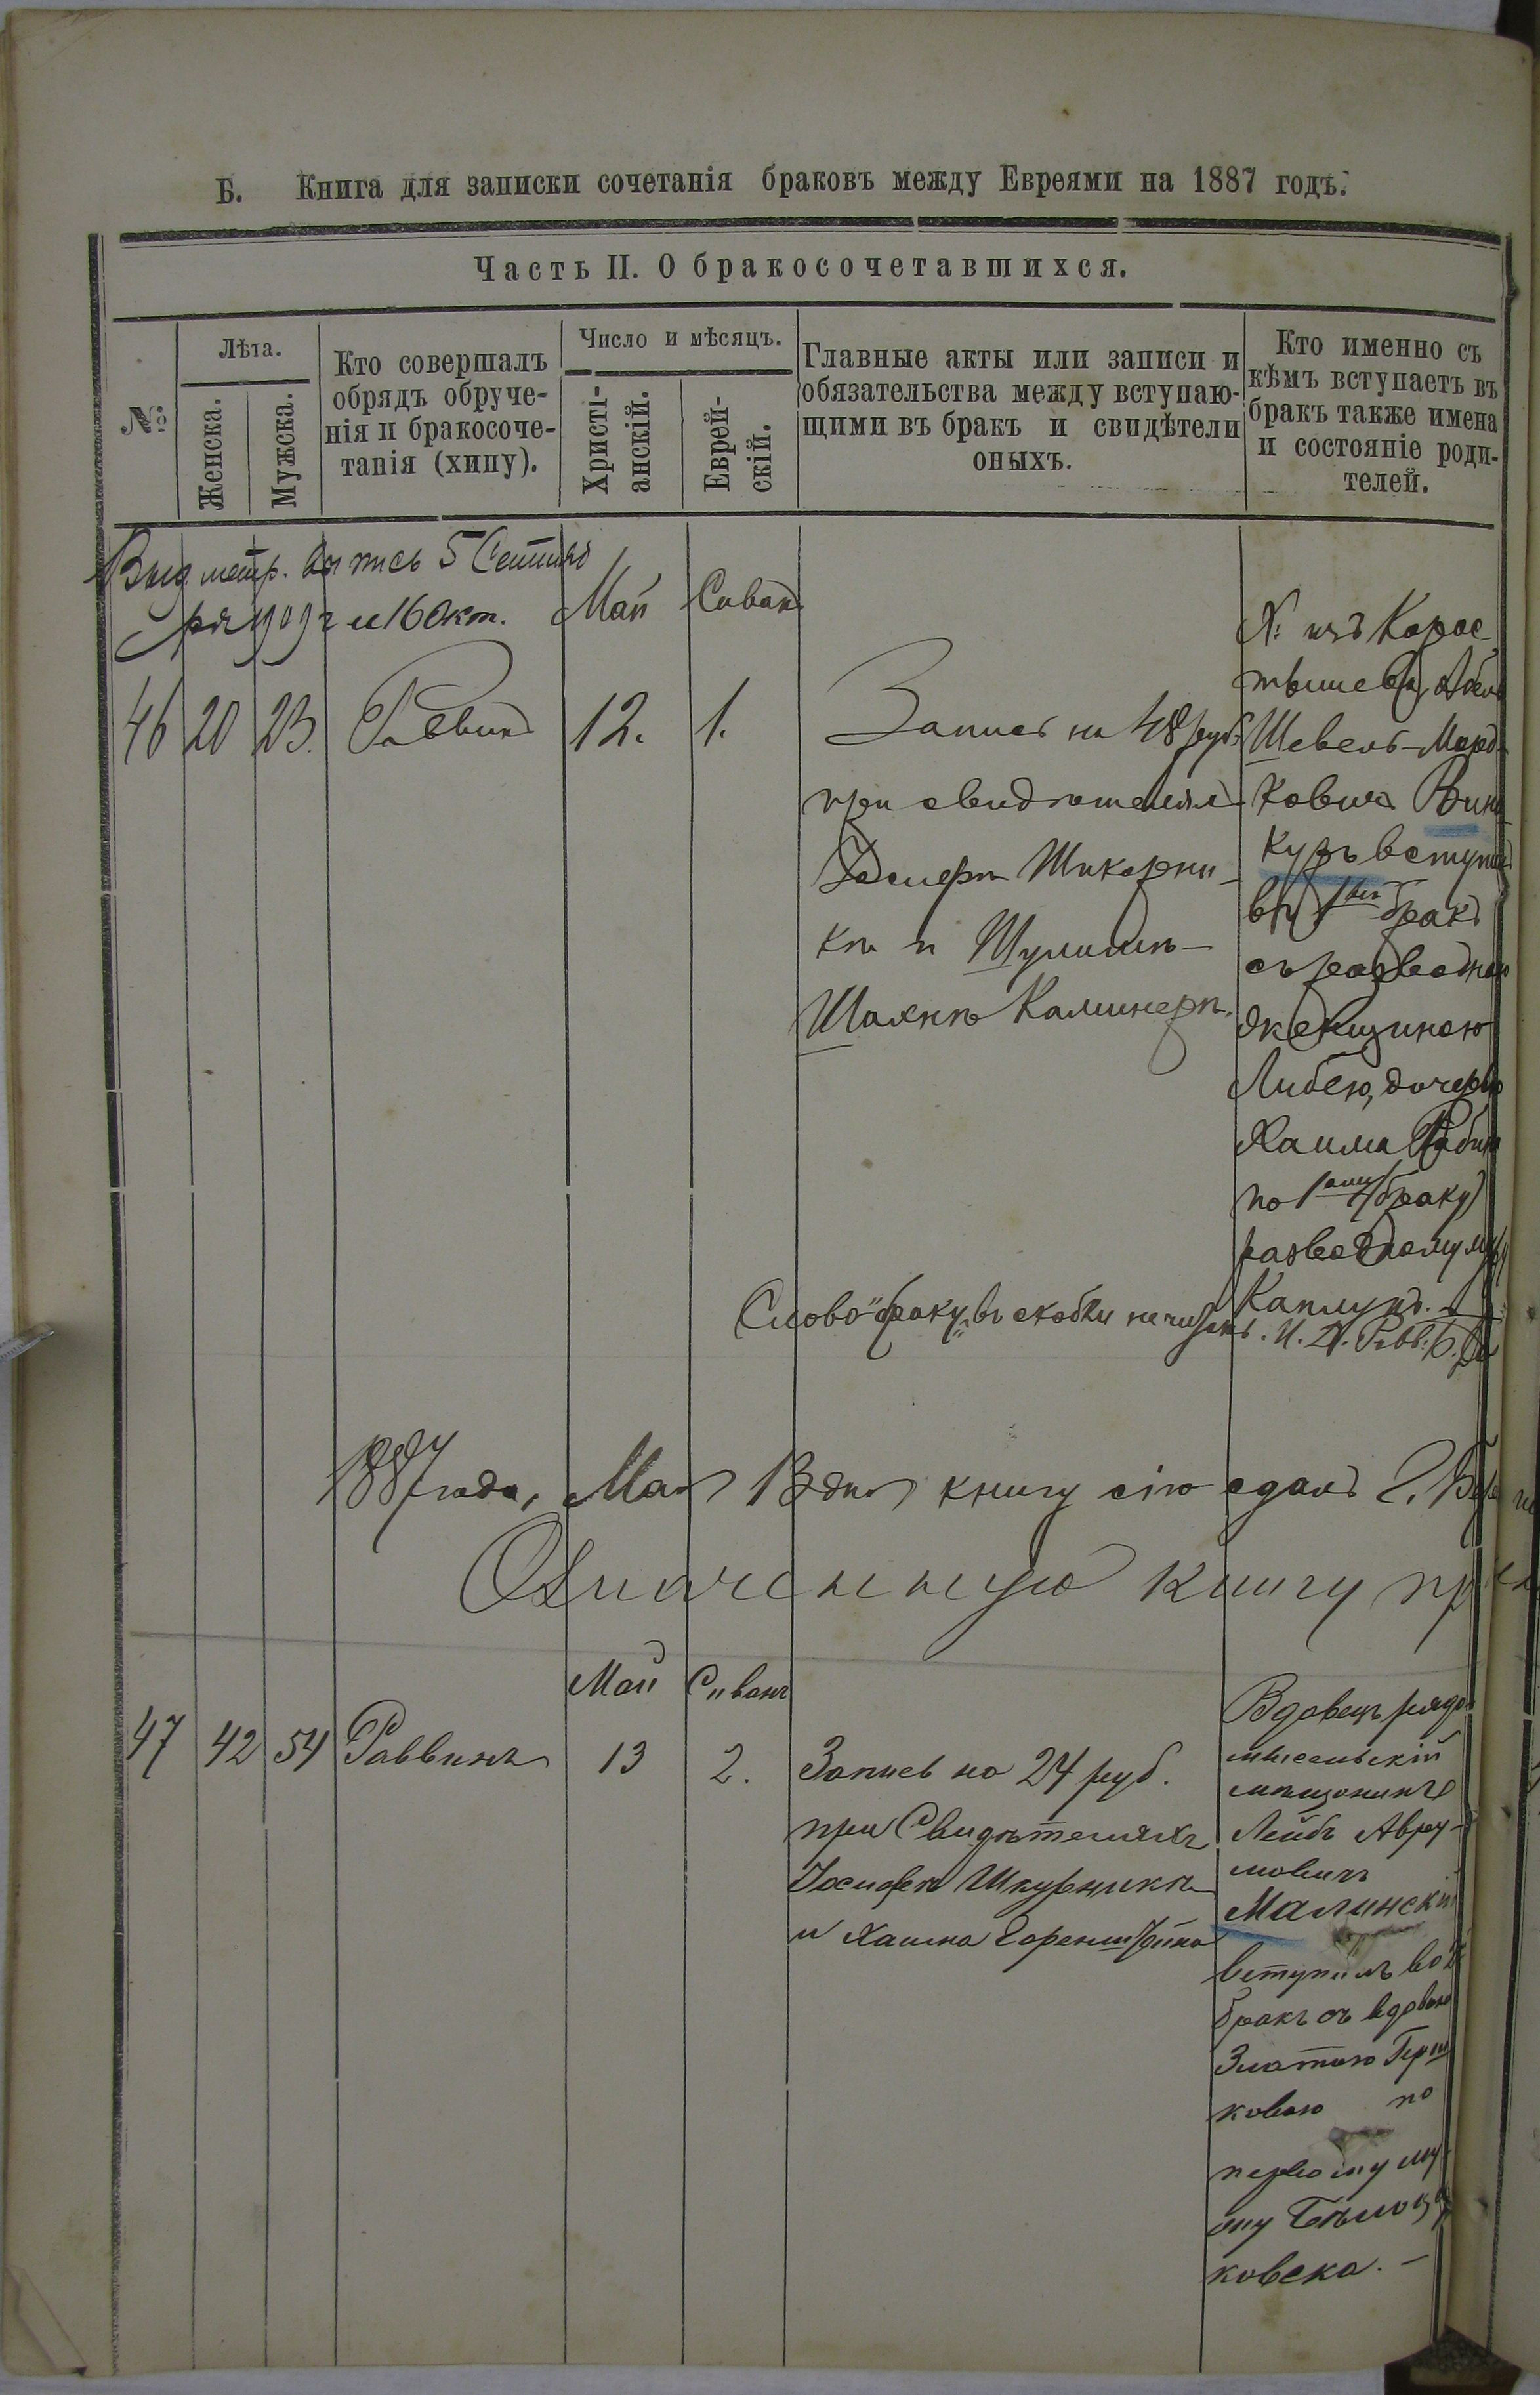 Б. Книга для записки сочетанія браковъ между Евреями на 1887 годъ.
Часть II. О бракосочетавшихся.
№
Лѣта.
Женска.
Мужска.
Кто совершалъ
обрядъ обруче-
нія и бракосоче-
танія (хипу).
Число и мѣсяцъ.
Христі-
анскій.
Еврей-
скій.
Главные акты или записи и
обязательства между вступаю-
щими въ бракъ и свидѣтели
оныхъ.
Кто именно съ
кѣмъ вступаетъ въ
бракъ также имена
и состояніе роди-
телей.
Выд. метр. выпись 5 Сентяб
ря 1909 г и 16 Окт.
Май Сиван
46 20 23. Раввинъ 12. 1.
Запись на 48 руб.
при свидѣтеляхъ
Шкорни-
кѣ и Шулимѣ-
Шахнѣ Каминерѣ.
изъ Корос-
тышева,
Шевель-Морд-
ковичъ Вин
куръ вступил
въ 1ый бракъ
съ разводною
женщиною
Либею, дочерью
Хаима
по 1ому (браку)
разводному мужу
Каплунъ.
Слово "браку" въ скобки не читать. И. Д. Равв.
1887 года, Мая 13 дня книгу сію сдалъ
Означенную книгу пр
Май Сиванъ
47 42 54 Раввинъ 13 2.
Запись на 24 руб.
при Свидѣтеляхъ
Иосифѣ Шкурникѣ
и Хаима Горенштейна
Вдовецъ радо
мысльскій
мѣщанинъ
Лейбъ Авру-
мовичъ
Малинскій
вступилъ во 2
бракъ съ вдовою
Златою Герш
ковою по
первому му-
жу
ковска. –